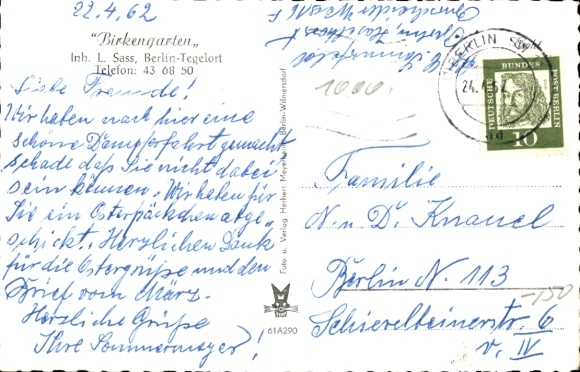 22.4.62
"Birkengarten"
Inh. L. Sass, Berlin-Tegelort
Telefon: 43 68 50
Liebe Freunde!
Wir haben nach hier eine
schöne Dampferfahrt gemacht
schade daß Sie nicht dabei
sein können. Wir haben für
Sie ein Osterpäckchen abge-
schickt. Herzlichen Dank
für die Ostergrüße und den
Brief vom März.
Herzliche Grüße
Ihre Sommermeyer!
Foto u. Verlag Herbert Meyerheim, Berlin-Wilmersdorf
61A290
1000.
BERLIN
24.
62
DEUTSCHE BUNDESPOST BERLIN
10
Familie
N. u. D. Knauel
Berlin N. 113
Schievelbeinerstr. 6
v. IV
-,50